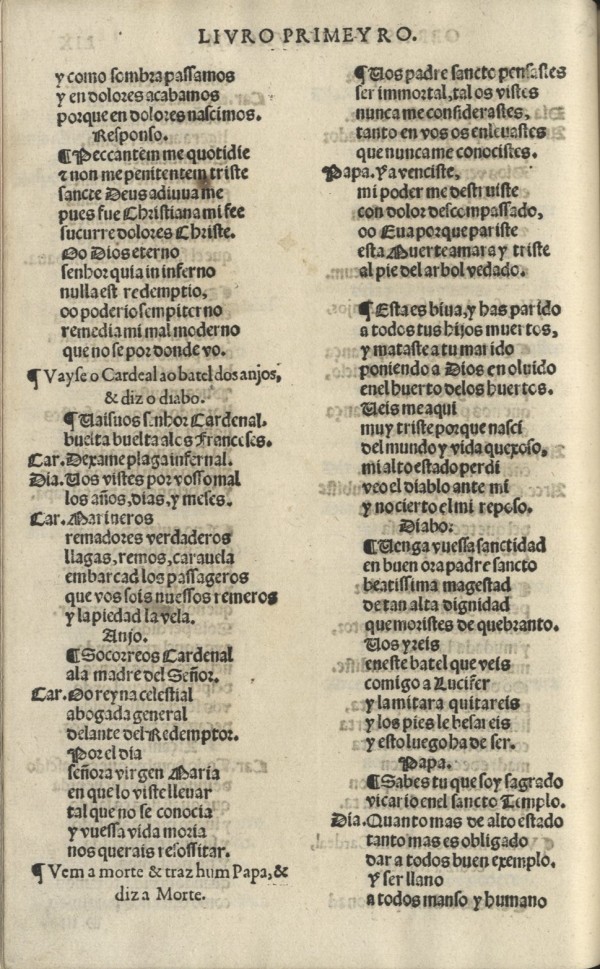 LIVRO PRIMEYRO.
y como sombra passamos
y en dolores acabamos
porque en dolores nascimos.
Responso.
¶ Peccantem me quotidie
⁊ non me penitentem triste
sancte Deus adiuua me
pues fue Christiana mi fee
sucurre dolores Christe.
Oo Dios eterno
senhor quia in inferno
nulla est redemptio,
oo poderio sempiterno
remedia mi mal moderno
que no se por donde vo.
¶ Vayse o Cardeal ao batel dos anjos,
& diz o diabo.
¶ Uaisuos senhor Cardenal.
buelta buelta alos Franceses.
Car. Dexame plaga infernal.
Dia. Uos vistes por vosso mal
los años, dias, y meses.
Car. Marineros
remadores verdaderos
llagas, remos, carauela
embarcad los passageros
que vos sois nuessos remeros
y la piedad la vela.
Anjo.
¶ Socorreos Cardenal
ala madre del Señor.
Car. Oo reyna celestial
abogada general
delante del Redemptor.
Por el dia
señora virgen Maria
en que lo viste lleuar
tal que no se conocia
y vuessa vida moria
nos querais ressossitar.
¶ Vem a morte & traz hum Papa, &
diz a Morte.
¶ Uos padre sancto pensastes
ser immortal, tal os vistes
nunca me considerastes,
tanto en vos os enleuastes
que nunca me conocistes.
Papa. Ya venciste,
mi poder me destruiste
con dolor descompassado,
oo Eua porque pariste
esta Muerte amara y triste
al pie del arbol vedado.
¶ Esta es biua, y has parido
a todos tus hijos muertos,
y mataste a tu marido
poniendo a Dios en oluido
enel huerto delos huertos.
Ueis me aqui
muy triste porque nasci
del mundo y vida quexoso,
mi alto estado perdi
veo el diablo ante mi
y no cierto el mi reposo.
Diabo.
¶ Uenga vuessa sanctidad
en buen ora padre sancto
beatissima magestad
de tan alta dignidad
que moristes de quebranto.
Uos yreis
eneste batel que veis
comigo a Lucifer
y la mitara quitareis
y los pies le besareis
y esto luego ha de ser.
Papa.
¶ Sabes tu que soy sagrado
vicario enel sancto Templo.
Dia. Quanto mas de alto estado
tanto mas es obligado
dar a todos buen exemplo.
Y ser llano
a todos manso y humano